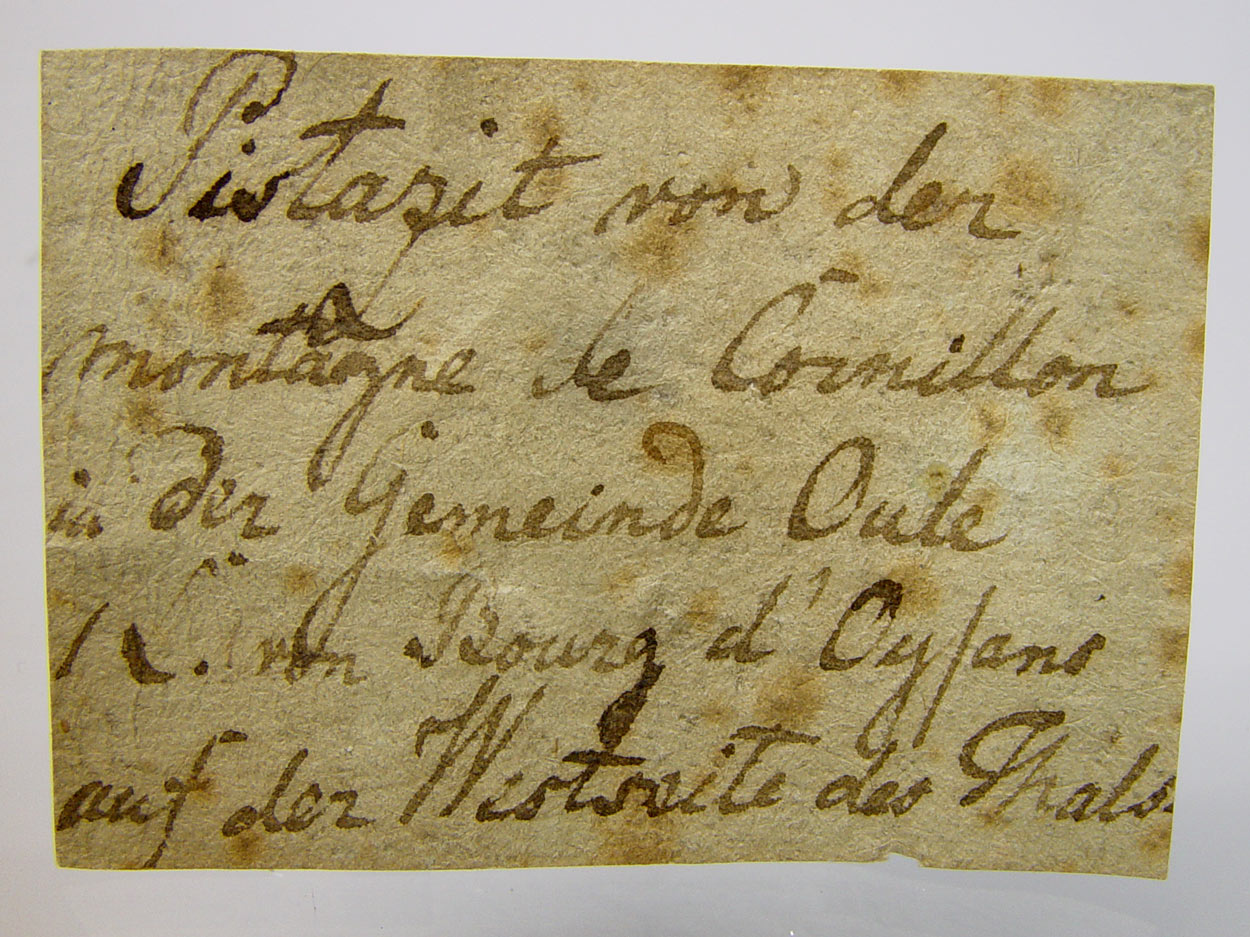 Pistazit von der
montagne de Cornillon
in der Gemeinde Oule
1 L. von Bourg d'Oysans
auf der Westseite des Thals